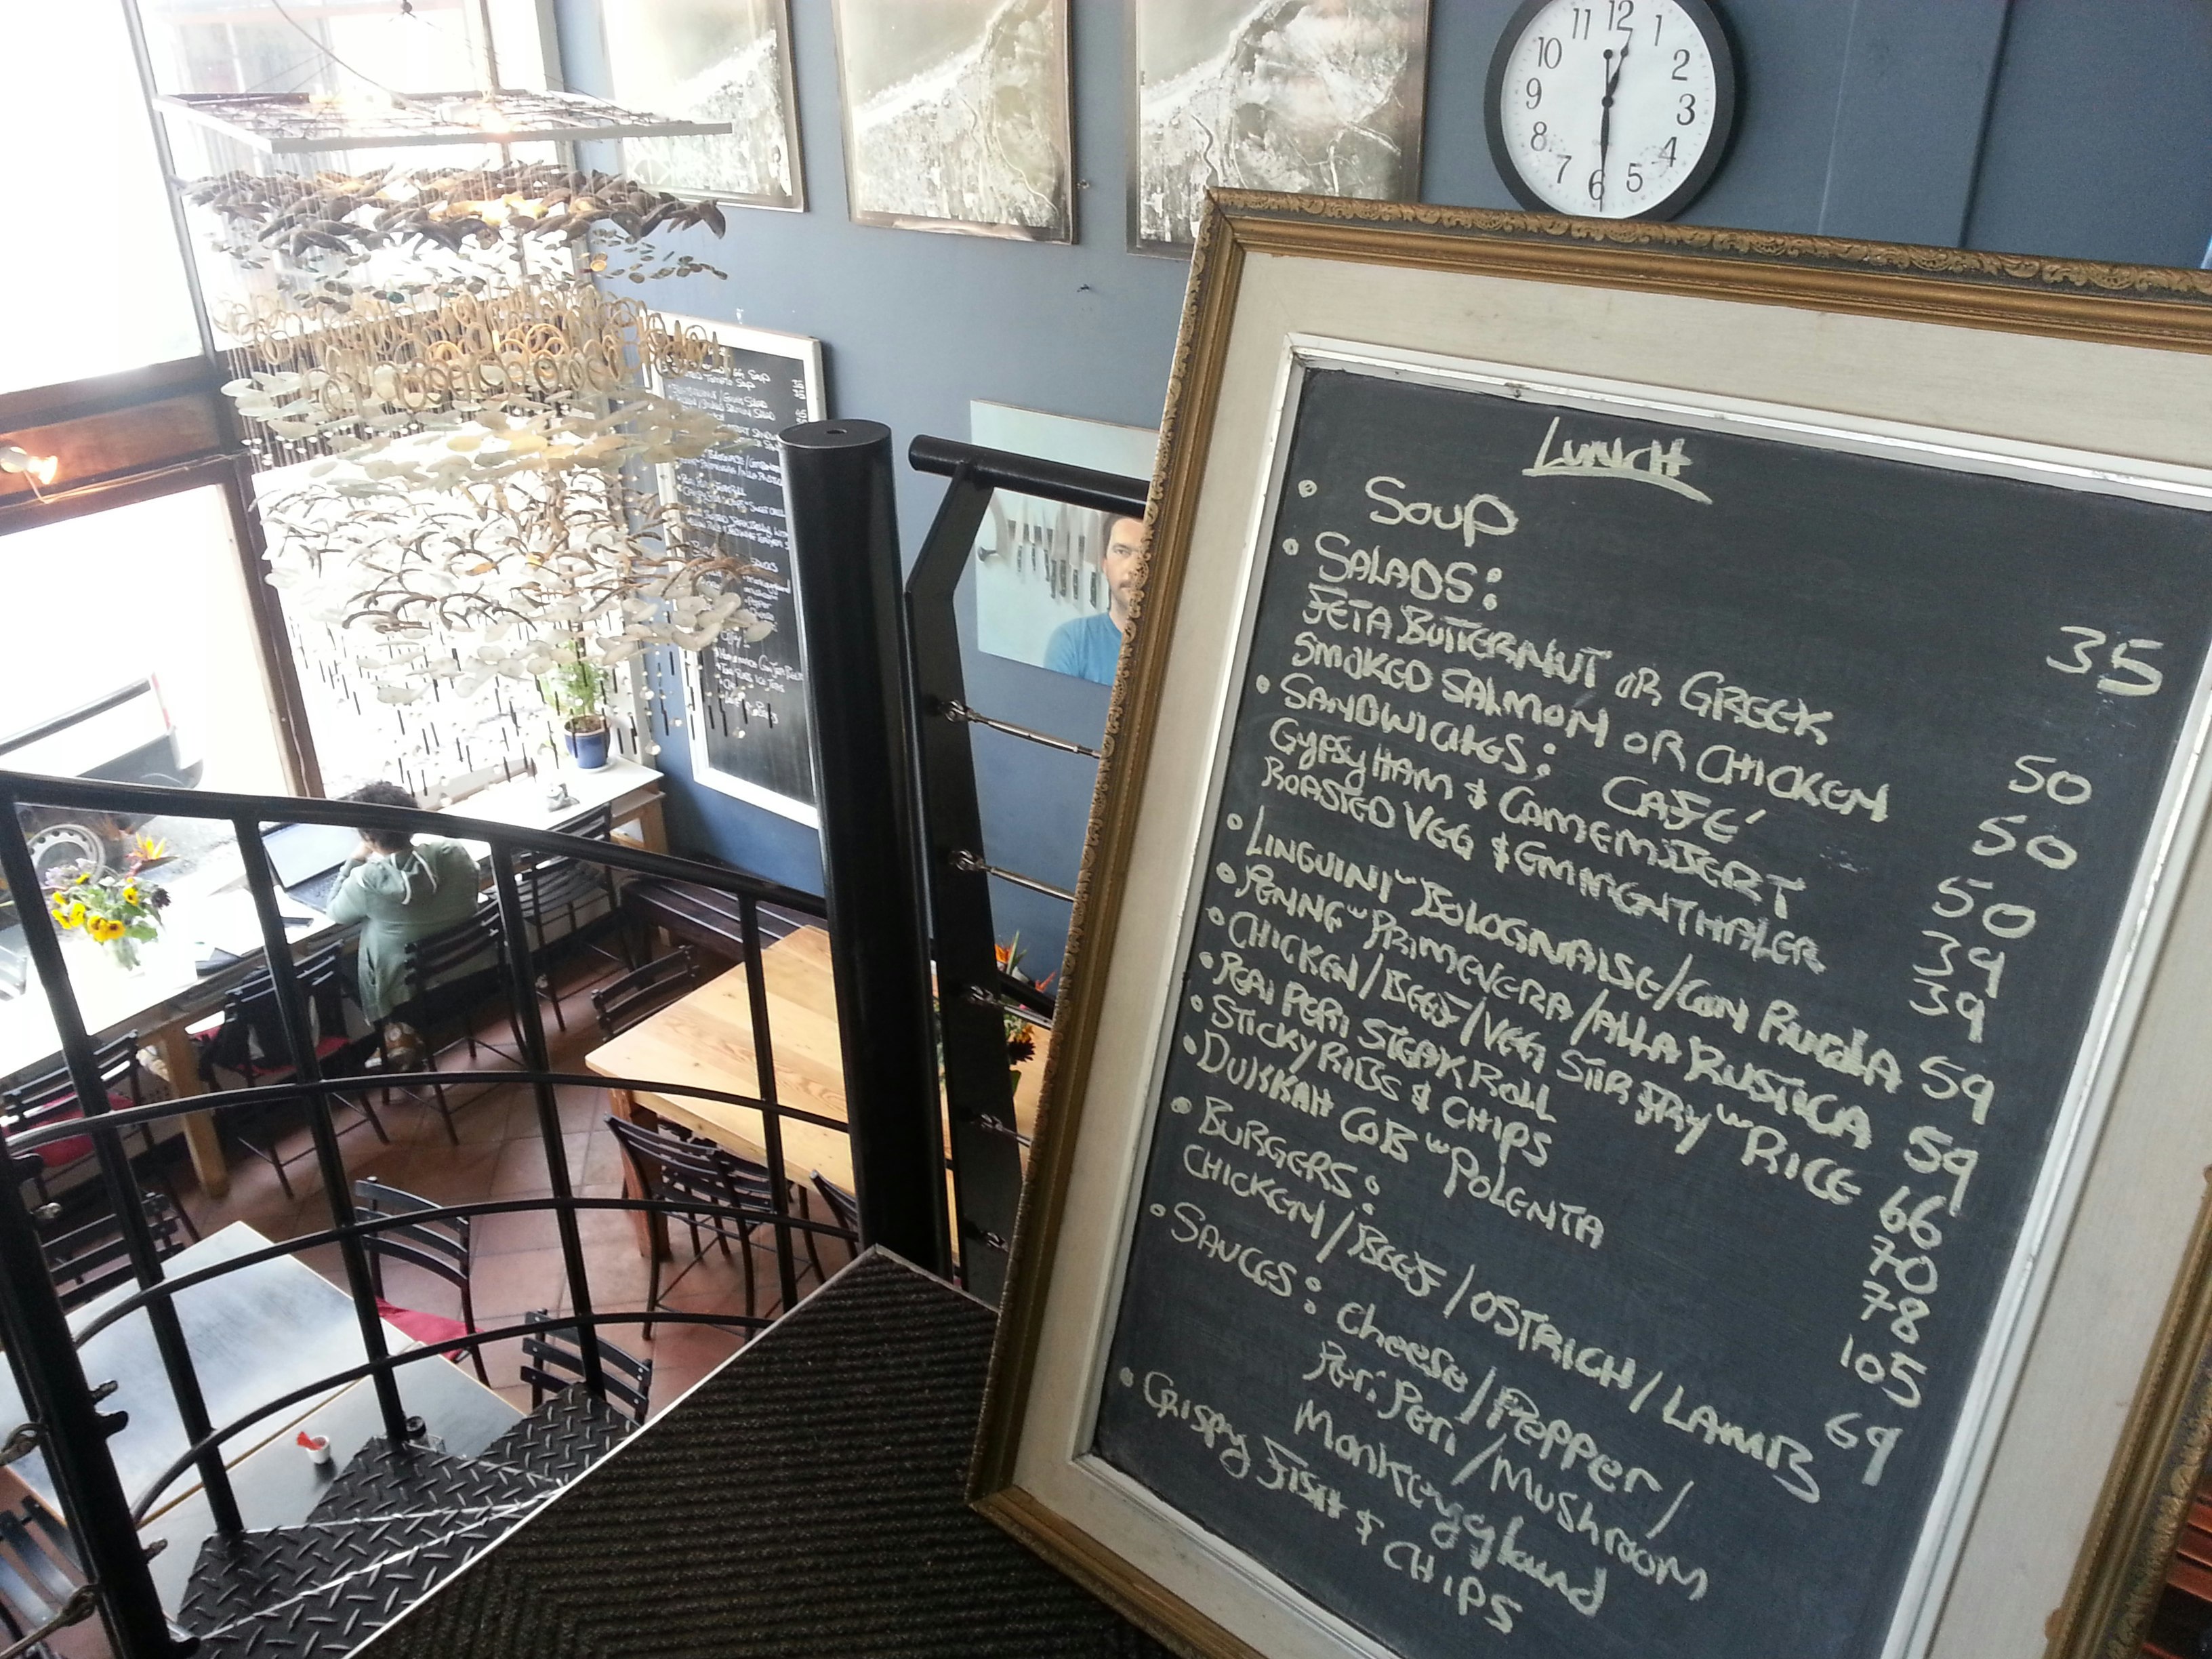 12
11
1
10
2
9
3
8
4
7
5
6
LUNCH
• Soup 35
• SALADS:
FETA BUTTERNUT OR GREEK 50
SMOKED SALMON OR CHICKEN 50
• SANDWICHES: CAFE' 50
GYPSY HAM & CAMEMBERT 39
ROASTED VEG & EMMENTHALER 39
• LINGUINI ~ BOLOGNAISE/CON RUCOLA 59
• PENNE ~ PRIMEVERA/ALLA RUSTICA 59
• CHICKEN/BEEF/VEG STIR FRY ~ RICE 66
• PERI PERI STEAK ROLL 70
• STICKY RIBS & CHIPS 78
• DUKKAH COB ~ POLENTA 105
• BURGERS:
CHICKEN/BEEF/OSTRICH/LAMB 69
• SAUCES: Cheese/Pepper/
Peri Peri/Mushroom
Monkeygland
• CRISPY FISH & CHIPS